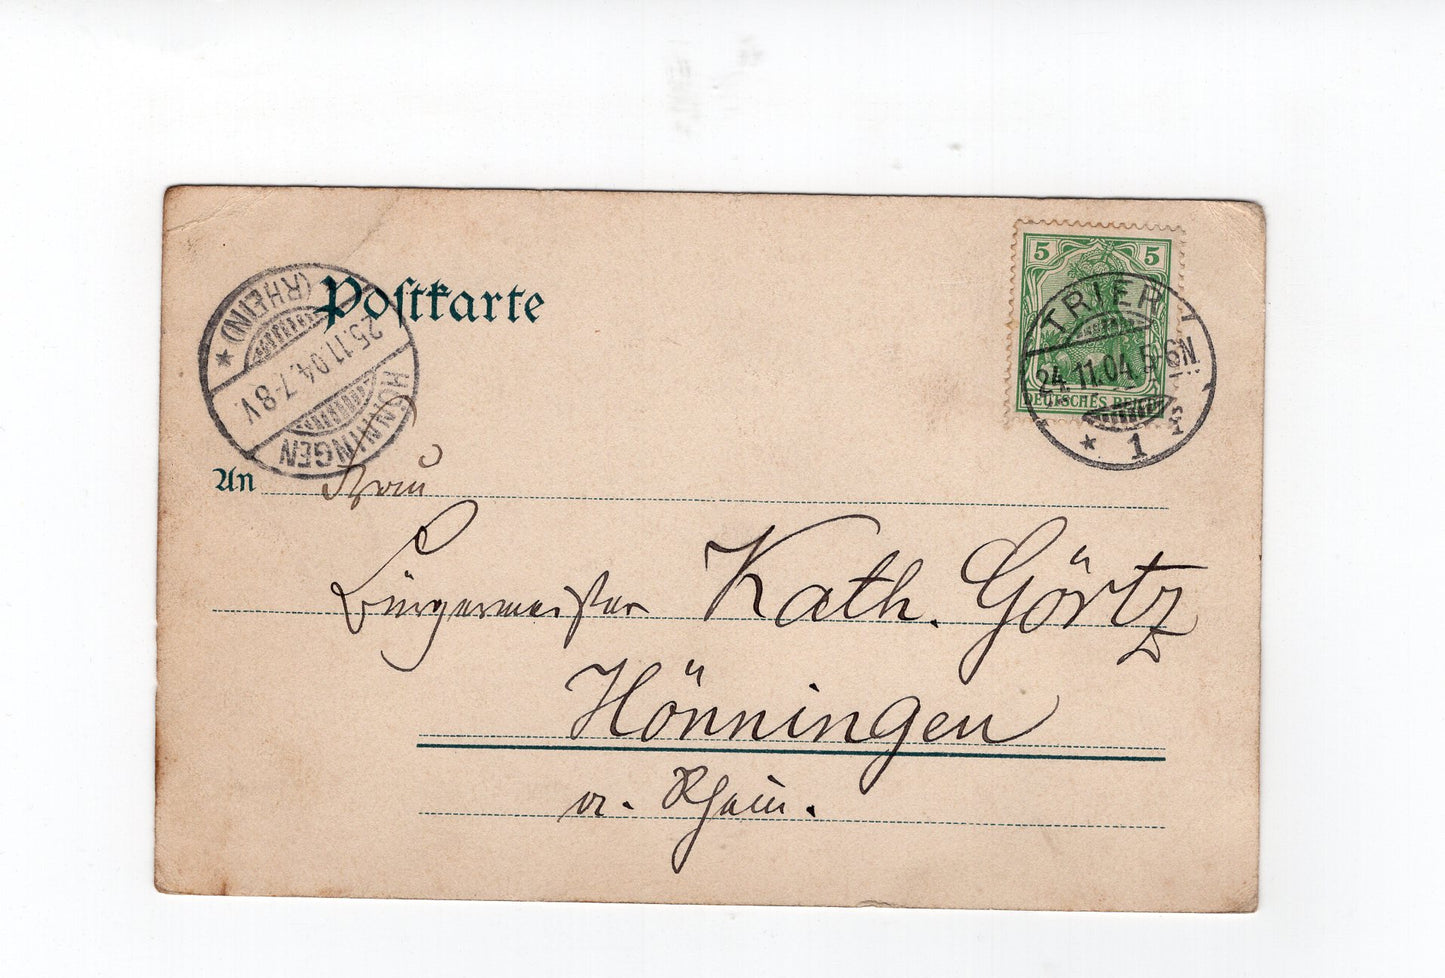 Postkarte
5 5
DEUTSCHES REICH
TRIER
24.11.04.5-6N.
* 1
HÖNNINGEN
25.11.04.7-8V.
(RHEIN) *
An Frau
Bürgermeister Kath. Görtz
Hönningen
a. Rhein.